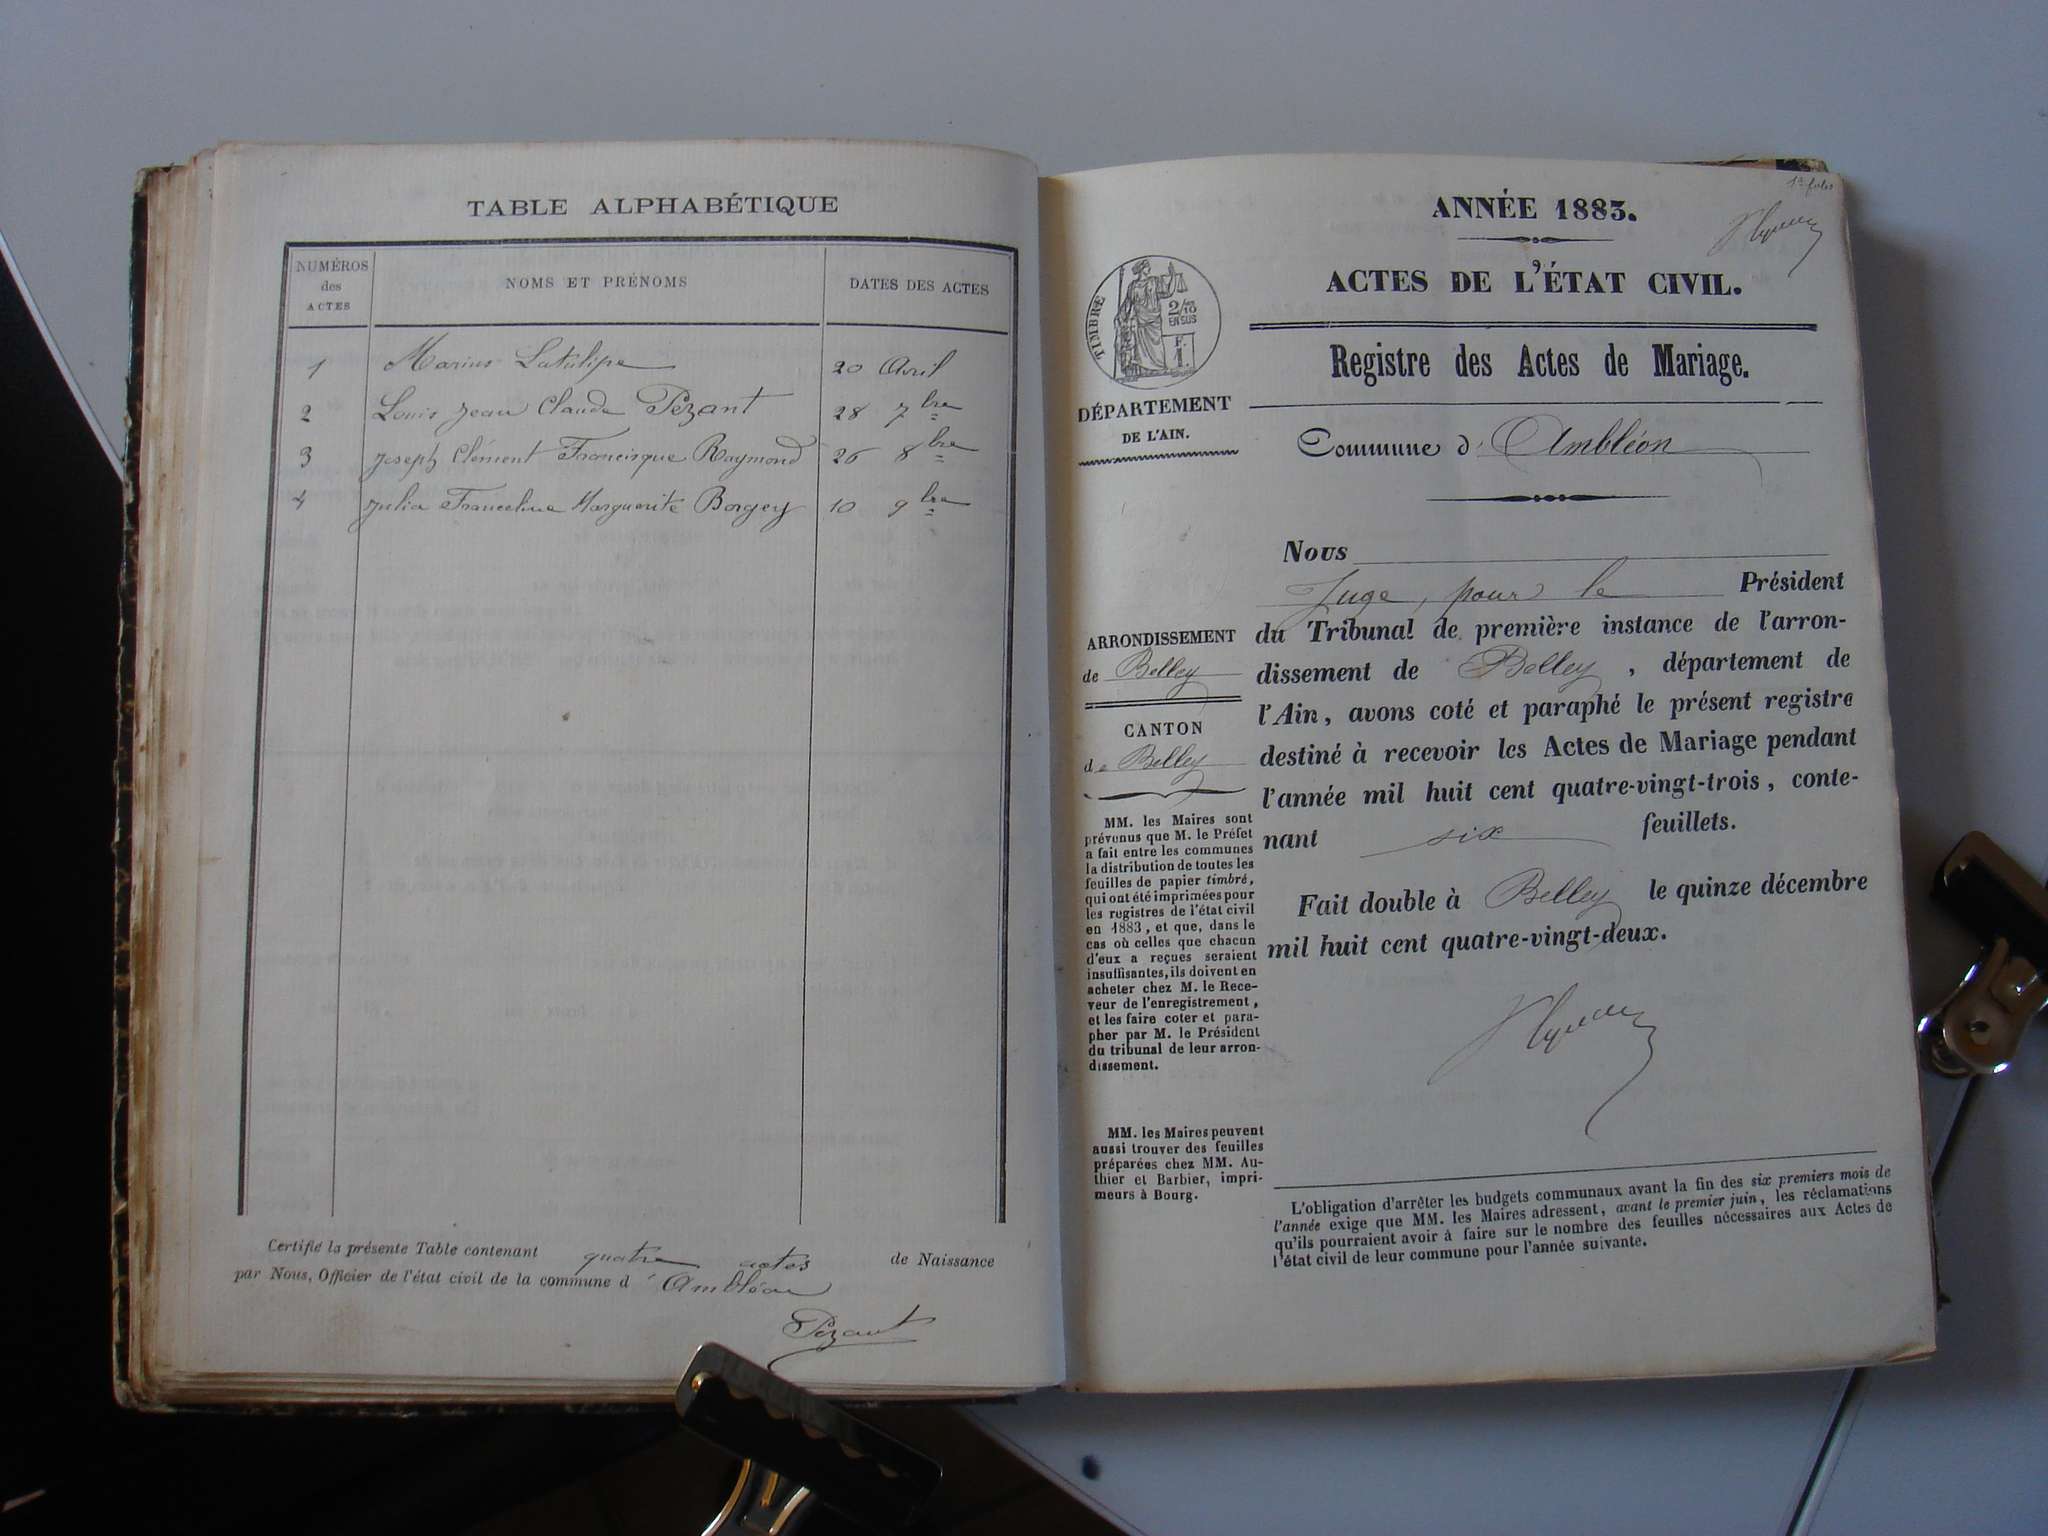 TABLE ALPHABÉTIQUE
NUMÉROS des ACTES NOMS ET PRÉNOMS DATES DES ACTES
1 Marius Latulipe 20 Avril
2 Louis Jean Claude Pézant 28 7bre
3 Joseph Clément Francisque Raymond 26 8bre
4 Julia Franceline Marguerite Borgey 10 9bre
Certifié la présente Table contenant quatre actes de Naissance
par Nous, Officier de l'état civil de la commune d'Ambléon
Pézant
ANNÉE 1883.
ACTES DE L'ÉTAT CIVIL.
TIMBRE
2/10
EN SUS
F.
1.
Registre des Actes de Mariage.
DÉPARTEMENT
DE L'AIN.
Commune d'Ambléon
Nous
Juge, pour le Président
du Tribunal de première instance de l'arron-
dissement de Belley, département de
l'Ain, avons coté et paraphé le présent registre
destiné à recevoir les Actes de Mariage pendant
l'année mil huit cent quatre-vingt-trois, conte-
nant six feuillets.
Fait double à Belley le quinze décembre
mil huit cent quatre-vingt-deux.
ARRONDISSEMENT
de Belley
CANTON
de Belley
MM. les Maires sont
prévenus que M. le Préfet
a fait entre les communes
la distribution de toutes les
feuilles de papier timbré,
qui ont été imprimées pour
les registres de l'état civil
en 1883, et que, dans le
cas où celles que chacun
d'eux a reçues seraient
insuffisantes, ils doivent en
acheter chez M. le Rece-
veur de l'enregistrement,
et les faire coter et para-
pher par M. le Président
du tribunal de leur arron-
dissement.
MM. les Maires peuvent
aussi trouver des feuilles
préparées chez MM. Au-
thier et Barbier, impri-
meurs à Bourg.
L'obligation d'arrêter les budgets communaux avant la fin des six premiers mois de
l'année exige que MM. les Maires adressent, avant le premier juin, les réclamations
qu'ils pourraient avoir à faire sur le nombre des feuilles nécessaires aux Actes de
l'état civil de leur commune pour l'année suivante.